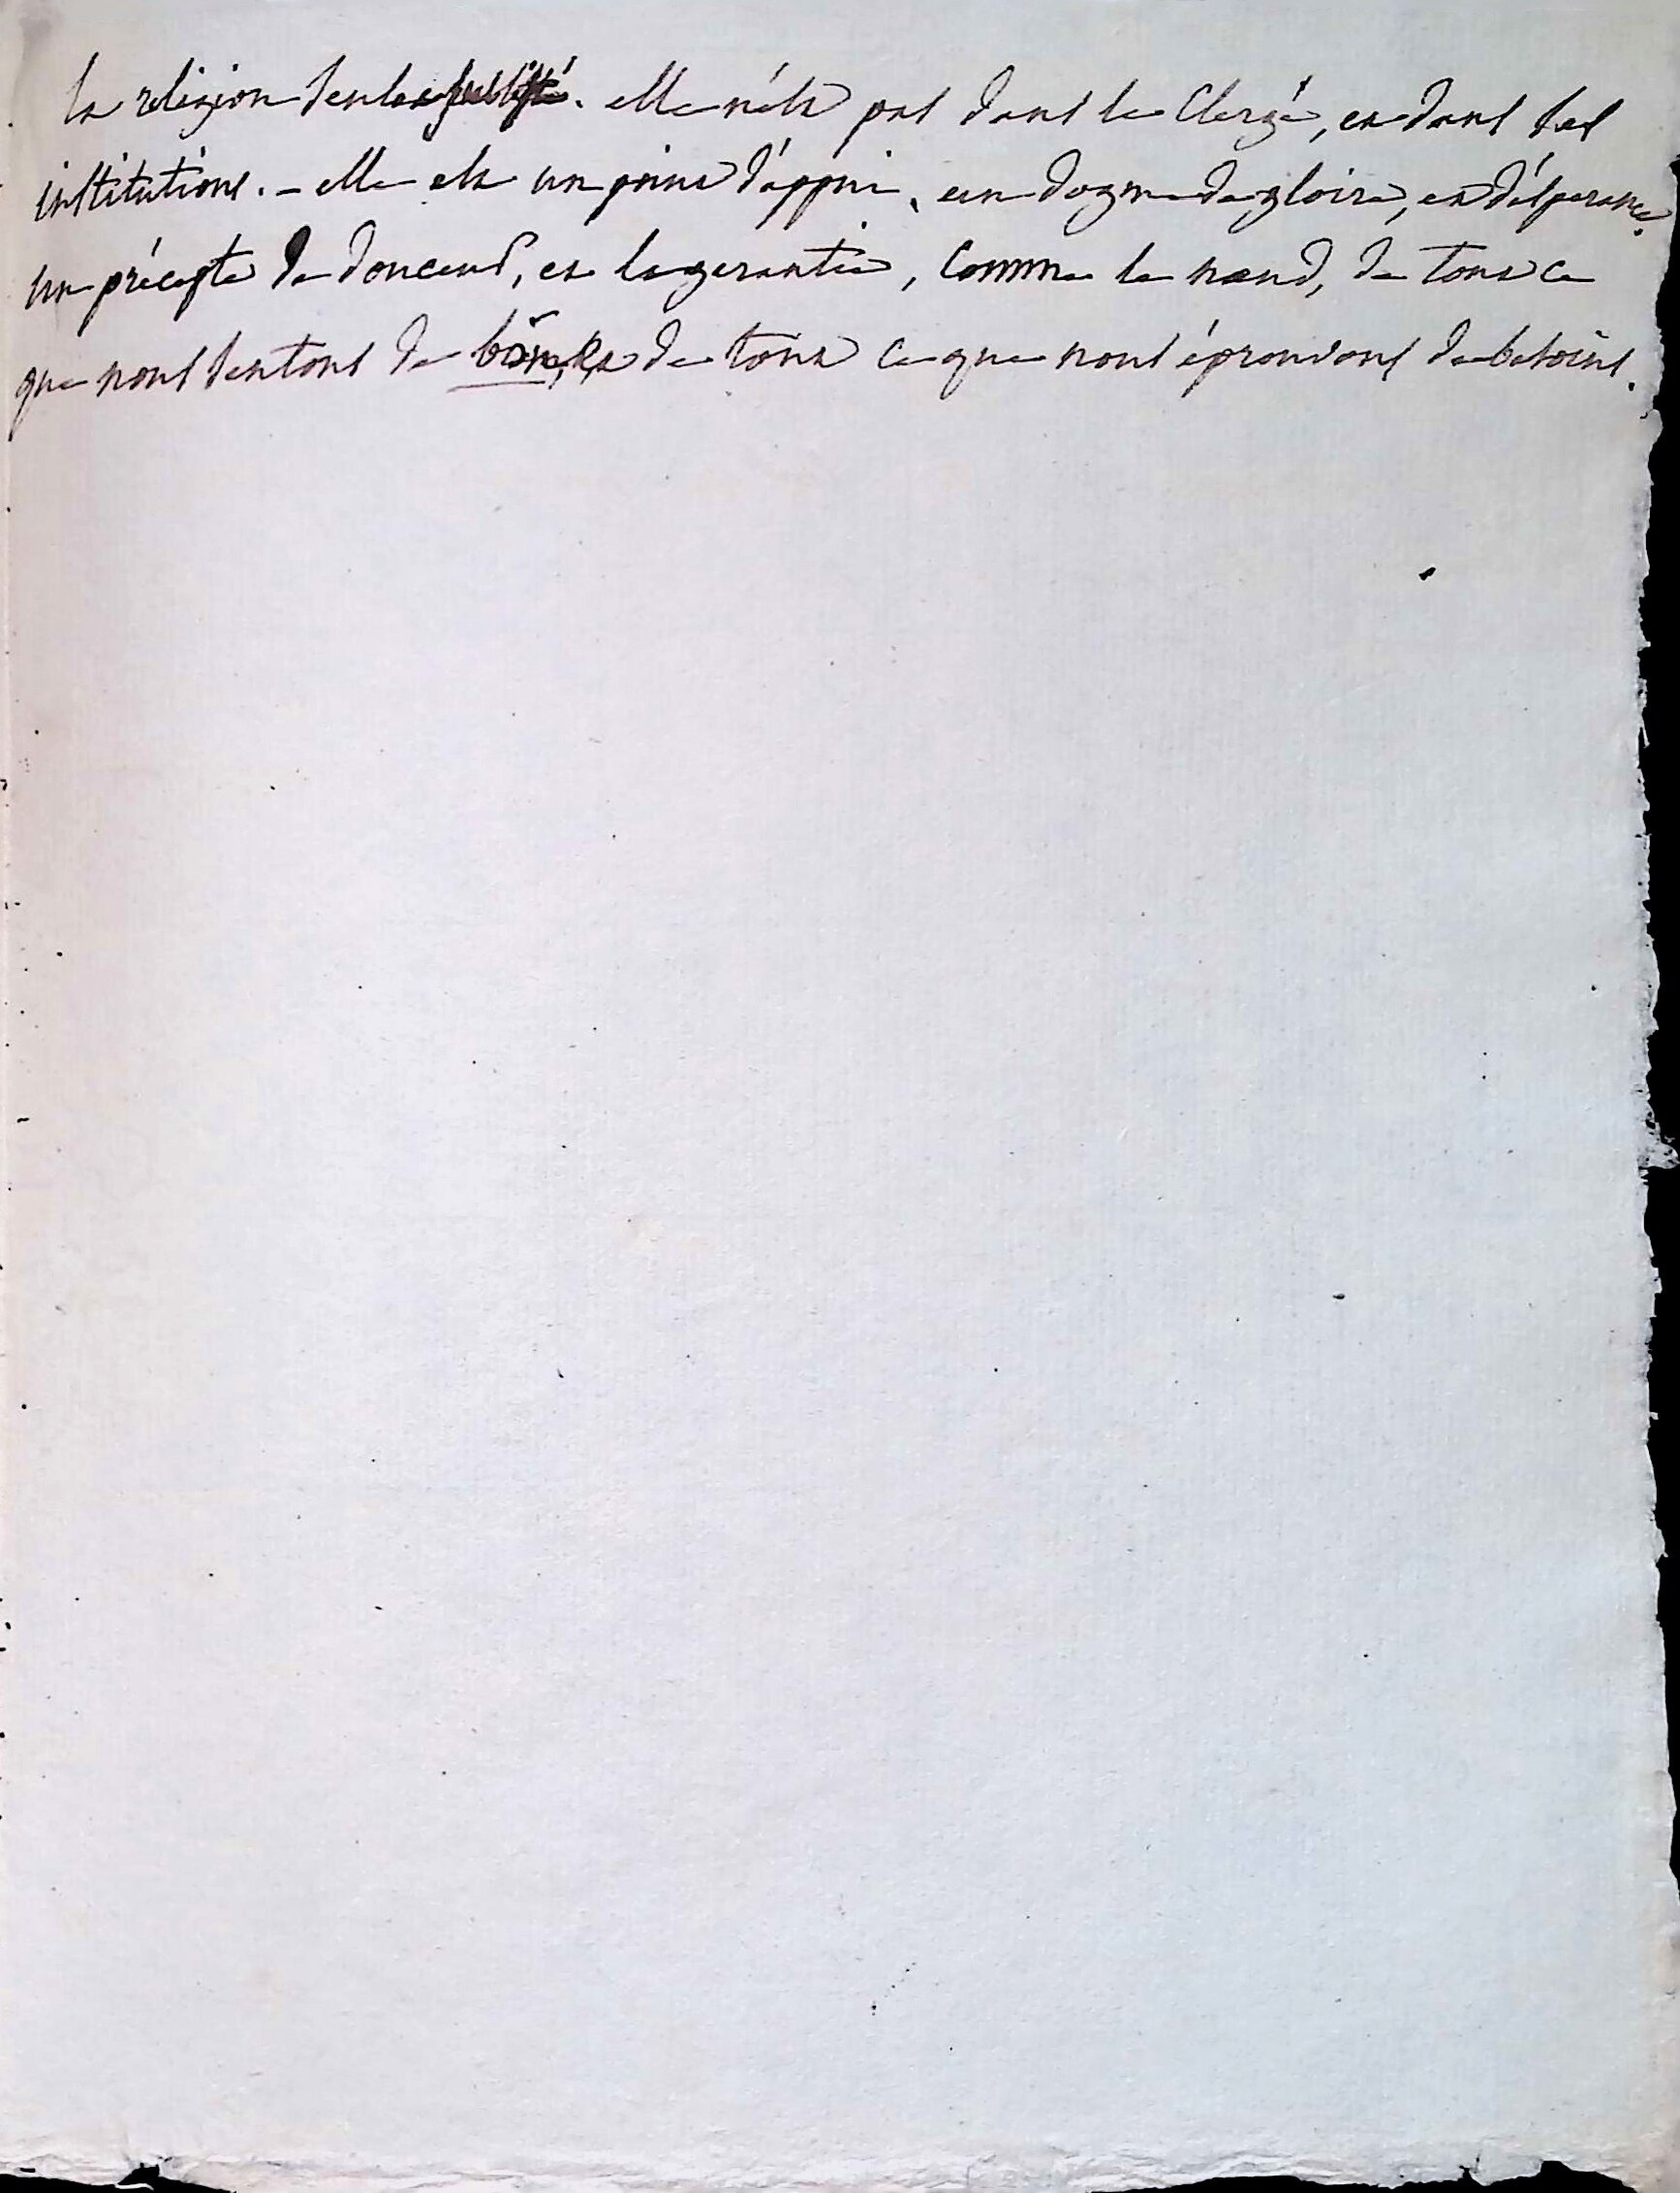 la religion seule a subsisté. elle n'est pas dans le Clergé, et dans ses
institutions. - elle est un point d'appui, un dogme de gloire, et d'espérance,
un précepte de douceur, et la garantie, comme le nœud, de tout ce
que nous sentons de bon, et de tout ce que nous éprouvons de besoins.